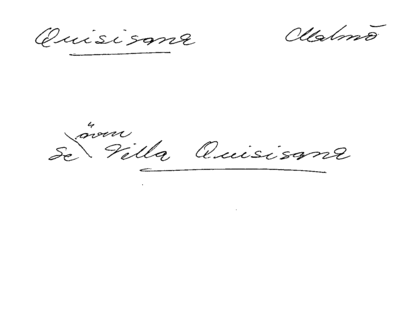 Quisisana Malmö
Se även Villa Quisisana